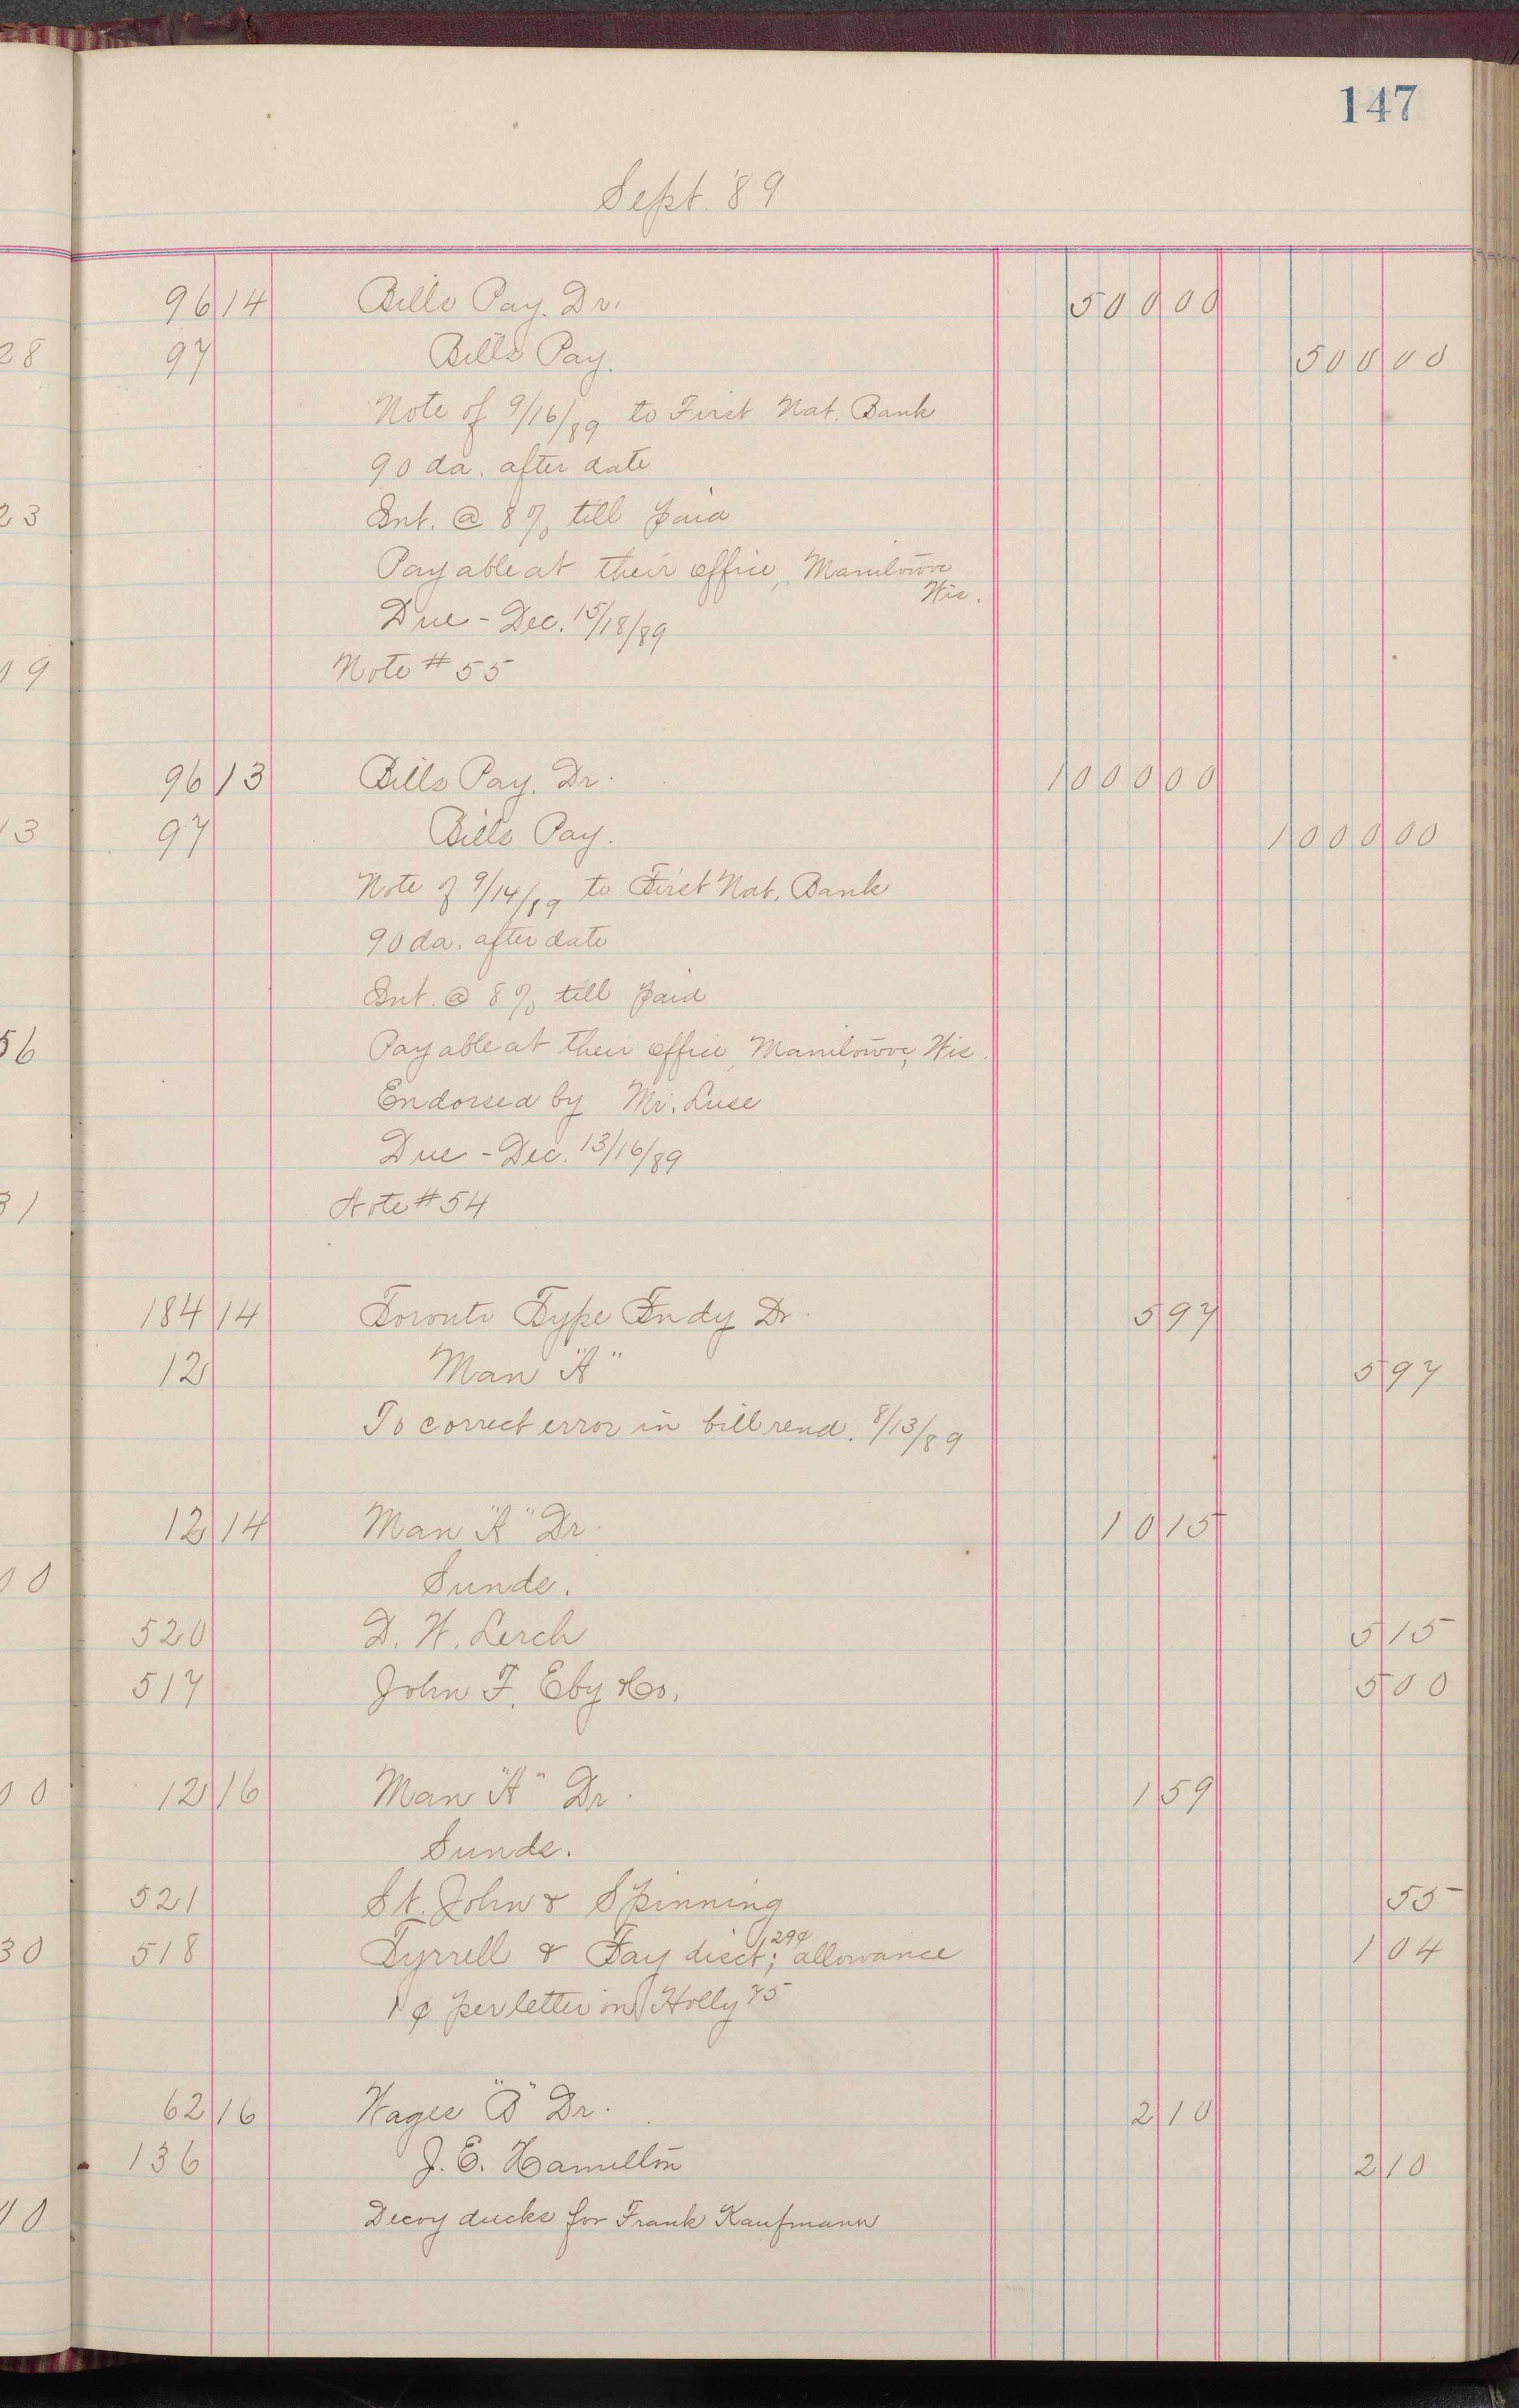 147
Sept. '89
96 14 Bills Pay. Dr. 500 00
28 97 Bills Pay. 500 00
Note of 9/16/89 to First Nat. Bank
90 da. after date
23 Int. @ 8% till paid
Payable at their office, Manitowoc
Wis.
Due - Dec. 15/18/89
19 Note # 55
96 13 Bills Pay. Dr. 1000 00
13 97 Bills Pay. 1000 00
Note of 9/14/89 to First Nat. Bank
90 da. after date
Int. @ 8% till paid
56 Payable at their office, Manitowoc, Wis.
Endorsed by Mr. Luse
Due - Dec. 13/16/89
31 Note # 54
184 14 Toronto Type Fndy Dr. 5 97
12 Man "A" 5 97
To correct error in bill rend. 8/13/89
12 14 Man "A" Dr. 10 15
00 Sunds.
520 D. W. Lerch 5 15
517 John F. Eby & Co. 5 00
00 12 16 Man "A" Dr. 1 59
Sunds.
521 St. John & Spinning 55
30 518 Tyrrell & Fay disct, 29¢; allowance 1 04
1¢ per letter on Holly 75
62 16 Wages "B" Dr. 2 10
136 J. E. Hamilton 2 10
10 Decoy ducks for Frank Kaufmann